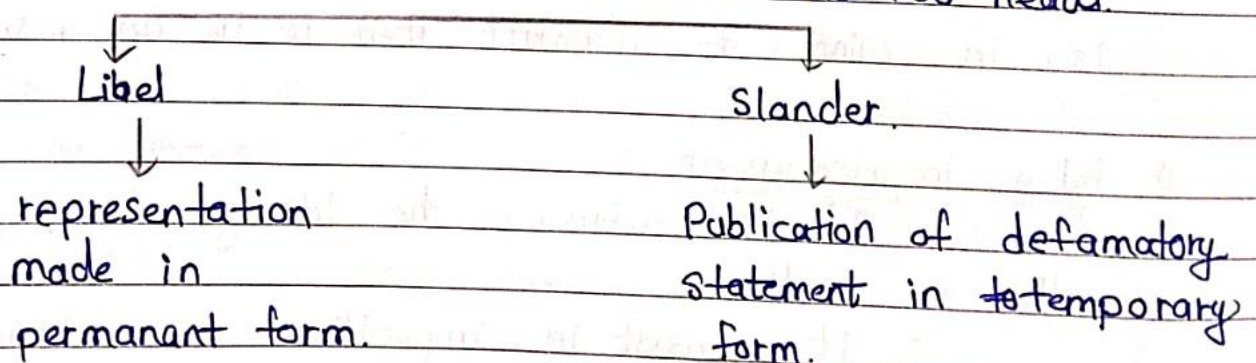 Libel
Slander.
representation
made in
permanant form.
Publication of defamatory
statement in temporary
form.